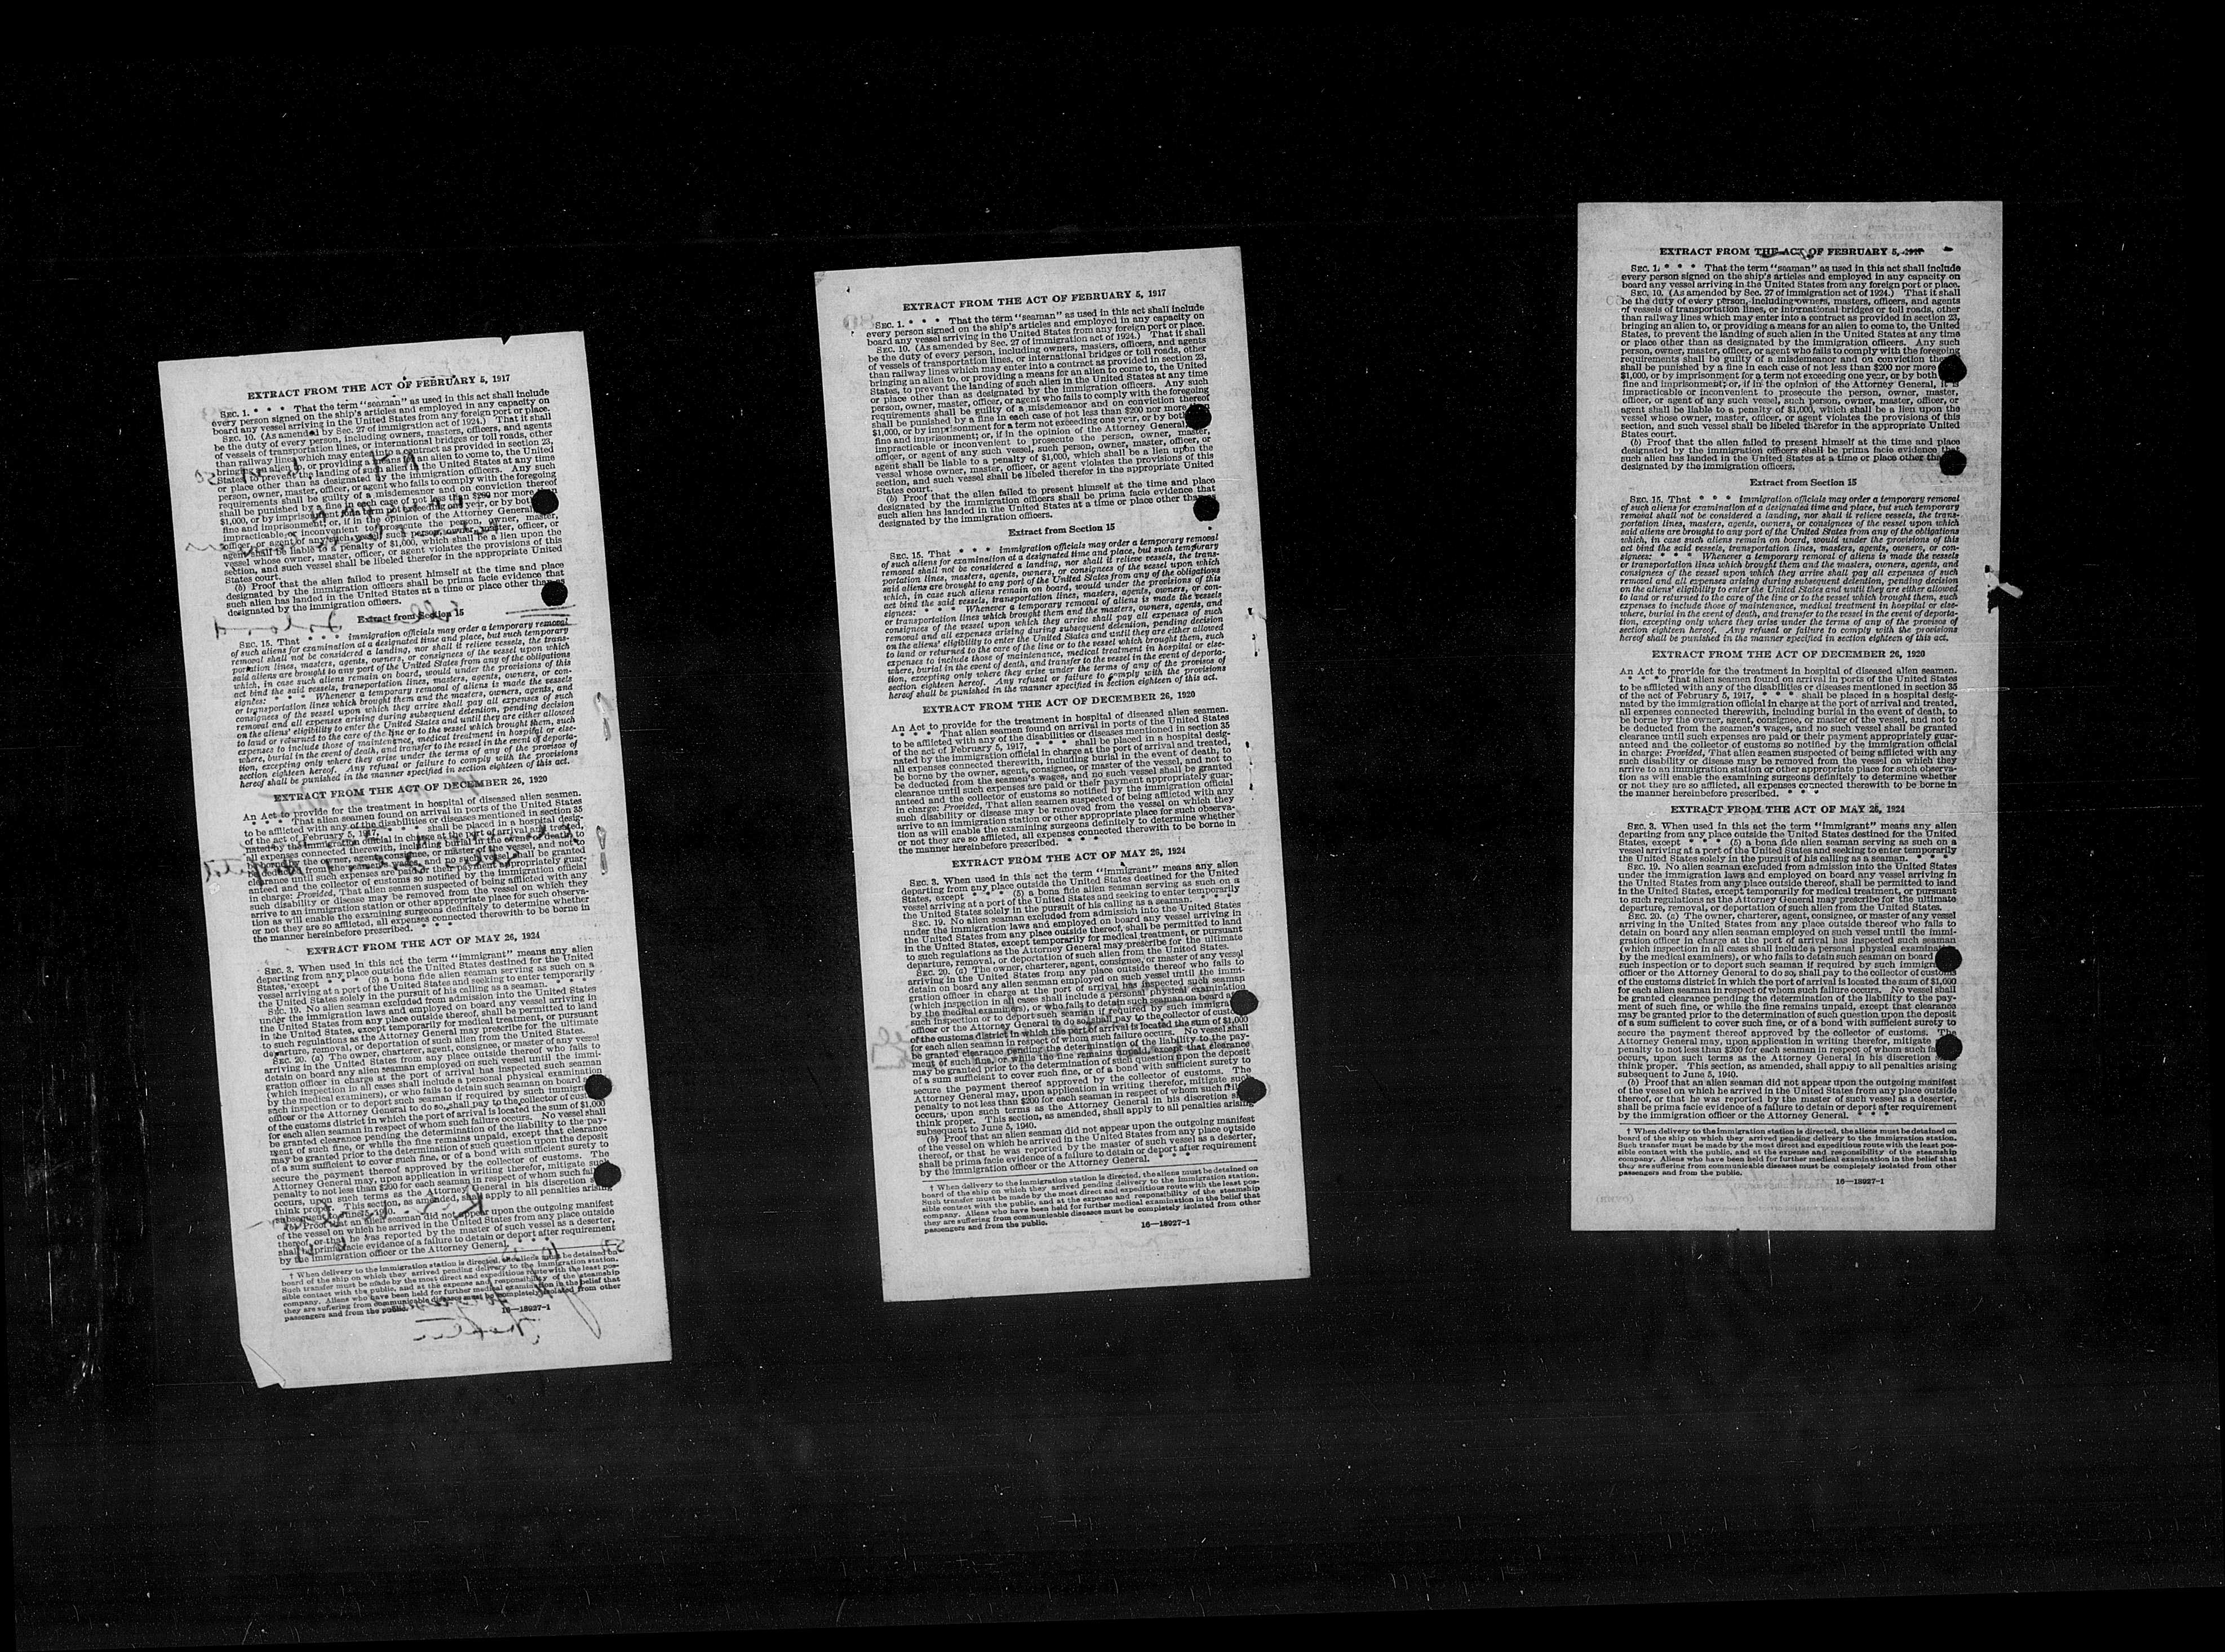 EXTRACT FROM THE ACT OF FEBRUARY 5, 1917
SEC. 1. * * * That the term "seaman" as used in this act shall include
every person signed on the ship's articles and employed in any capacity on
board any vessel arriving in the United States from any foreign port or place.
SEC. 10. (As amended by Sec. 27 of immigration act of 1924.) That it shall
be the duty of every person, including owners, masters, officers, and agents
of vessels of transportation lines, or international bridges or toll roads, other
than railway lines which may enter into a contract as provided in section 23,
bringing an alien to, or providing a means for an alien to come to, the United
States, to prevent the landing of such alien in the United States at any time
or place other than as designated by the immigration officers. Any such
person, owner, master, officer, or agent who fails to comply with the foregoing
requirements shall be guilty of a misdemeanor and on conviction thereof
shall be punished by a fine in each case of not less than $200 nor more
$1,000, or by imprisonment for a term not exceeding one year, or by both
fine and imprisonment; or, if in the opinion of the Attorney General,
impracticable or inconvenient to prosecute the person, owner, master,
officer, or agent of any such vessel, such person, owner, master, officer, or
agent shall be liable to a penalty of $1,000, which shall be a lien upon the
vessel whose owner, master, officer, or agent violates the provisions of this
section, and such vessel shall be libeled therefor in the appropriate United
States court.
(b) Proof that the alien failed to present himself at the time and place
designated by the immigration officers shall be prima facie evidence that
such alien has landed in the United States at a time or place other than as
designated by the immigration officers.
Extract from Section 15
SEC. 15. That * * * immigration officials may order a temporary removal
of such aliens for examination at a designated time and place, but such temporary
removal shall not be considered a landing, nor shall it relieve vessels, the trans-
portation lines, masters, agents, owners, or consignees of the vessel upon which
said aliens are brought to any port of the United States from any of the obligations
which, in case such aliens remain on board, would under the provisions of this
act bind the said vessels, transportation lines, masters, agents, owners, or con-
signees: * * * Whenever a temporary removal of aliens is made the vessels
or transportation lines which brought them and the masters, owners, agents, and
consignees of the vessel upon which they arrive shall pay all expenses of such
removal and all expenses arising during subsequent detention, pending decision
on the aliens' eligibility to enter the United States and until they are either allowed
to land or returned to the care of the line or to the vessel which brought them, such
expenses to include those of maintenance, medical treatment in hospital or else-
where, burial in the event of death, and transfer to the vessel in the event of deporta-
tion, excepting only where they arise under the terms of any of the provisos of
section eighteen hereof. Any refusal or failure to comply with the provisions
hereof shall be punished in the manner specified in section eighteen of this act.
EXTRACT FROM THE ACT OF DECEMBER 26, 1920
An Act to provide for the treatment in hospital of diseased alien seamen.
* * * That alien seamen found on arrival in ports of the United States
to be afflicted with any of the disabilities or diseases mentioned in section 35
of the act of February 5, 1917, * * * shall be placed in a hospital desig-
nated by the immigration official in charge at the port of arrival and treated,
all expenses connected therewith, including burial in the event of death, to
be borne by the owner, agent, consignee, or master of the vessel, and not to
be deducted from the seamen's wages, and no such vessel shall be granted
clearance until such expenses are paid or their payment appropriately guar-
anteed and the collector of customs so notified by the immigration official
in charge: Provided, That alien seamen suspected of being afflicted with any
such disability or disease may be removed from the vessel on which they
arrive to an immigration station or other appropriate place for such observa-
tion as will enable the examining surgeons definitely to determine whether
or not they are so afflicted, all expenses connected therewith to be borne in
the manner hereinbefore prescribed. * * *
EXTRACT FROM THE ACT OF MAY 26, 1924
SEC. 3. When used in this act the term "immigrant" means any alien
departing from any place outside the United States destined for the United
States, except * * * (5) a bona fide alien seaman serving as such on a
vessel arriving at a port of the United States and seeking to enter temporarily
the United States solely in the pursuit of his calling as a seaman. * * *
SEC. 19. No alien seaman excluded from admission into the United States
under the immigration laws and employed on board any vessel arriving in
the United States from any place outside thereof, shall be permitted to land
in the United States, except temporarily for medical treatment, or pursuant
to such regulations as the Attorney General may prescribe for the ultimate
departure, removal, or deportation of such alien from the United States.
SEC. 20. (a) The owner, charterer, agent, consignee, or master of any vessel
arriving in the United States from any place outside thereof who fails to
detain on board any alien seaman employed on such vessel until the immi-
gration officer in charge at the port of arrival has inspected such seaman
(which inspection in all cases shall include a personal physical examination
by the medical examiners), or who fails to detain such seaman on board
such inspection or to deport such seaman if required by such immigrat
officer or the Attorney General to do so, shall pay to the collector of cust
of the customs district in which the port of arrival is located the sum of $1,000
for each alien seaman in respect of whom such failure occurs. No vessel shall
be granted clearance pending the determination of the liability to the pay-
ment of such fine, or while the fine remains unpaid, except that clearance
may be granted prior to the determination of such question upon the deposit
of a sum sufficient to cover such fine, or of a bond with sufficient surety to
secure the payment thereof approved by the collector of customs. The
Attorney General may, upon application in writing therefor, mitigate such
penalty to not less than $200 for each seaman in respect of whom such fail
occurs, upon such terms as the Attorney General in his discretion
think proper. This section, as amended, shall apply to all penalties arising
subsequent to June 5, 1940.
(b) Proof that an alien seaman did not appear upon the outgoing manifest
of the vessel on which he arrived in the United States from any place outside
thereof, or that he was reported by the master of such vessel as a deserter,
shall be prima facie evidence of a failure to detain or deport after requirement
by the immigration officer or the Attorney General. * * *
† When delivery to the immigration station is directed, the aliens must be detained on
board of the ship on which they arrived pending delivery to the immigration station.
Such transfer must be made by the most direct and expeditious route with the least pos-
sible contact with the public, and at the expense and responsibility of the steamship
company. Aliens who have been held for further medical examination in the belief that
they are suffering from communicable diseases must be completely isolated from other
passengers and from the public.
16—18927-1
EXTRACT FROM THE ACT OF FEBRUARY 5, 1917
SEC. 1. * * * That the term "seaman" as used in this act shall include
every person signed on the ship's articles and employed in any capacity on
board any vessel arriving in the United States from any foreign port or place.
SEC. 10. (As amended by Sec. 27 of immigration act of 1924.) That it shall
be the duty of every person, including owners, masters, officers, and agents
of vessels of transportation lines, or international bridges or toll roads, other
than railway lines which may enter into a contract as provided in section 23,
bringing an alien to, or providing a means for an alien to come to, the United
States, to prevent the landing of such alien in the United States at any time
or place other than as designated by the immigration officers. Any such
person, owner, master, officer, or agent who fails to comply with the foregoing
requirements shall be guilty of a misdemeanor and on conviction thereof
shall be punished by a fine in each case of not less than $200 nor more
$1,000, or by imprisonment for a term not exceeding one year, or by both
fine and imprisonment; or, if in the opinion of the Attorney General,
impracticable or inconvenient to prosecute the person, owner, master,
officer, or agent of any such vessel, such person, owner, master, officer, or
agent shall be liable to a penalty of $1,000, which shall be a lien upon the
vessel whose owner, master, officer, or agent violates the provisions of this
section, and such vessel shall be libeled therefor in the appropriate United
States court.
(b) Proof that the alien failed to present himself at the time and place
designated by the immigration officers shall be prima facie evidence that
such alien has landed in the United States at a time or place other than as
designated by the immigration officers.
Extract from Section 15
SEC. 15. That * * * immigration officials may order a temporary removal
of such aliens for examination at a designated time and place, but such temporary
removal shall not be considered a landing, nor shall it relieve vessels, the trans-
portation lines, masters, agents, owners, or consignees of the vessel upon which
said aliens are brought to any port of the United States from any of the obligations
which, in case such aliens remain on board, would under the provisions of this
act bind the said vessels, transportation lines, masters, agents, owners, or con-
signees: * * * Whenever a temporary removal of aliens is made the vessels
or transportation lines which brought them and the masters, owners, agents, and
consignees of the vessel upon which they arrive shall pay all expenses of such
removal and all expenses arising during subsequent detention, pending decision
on the aliens' eligibility to enter the United States and until they are either allowed
to land or returned to the care of the line or to the vessel which brought them, such
expenses to include those of maintenance, medical treatment in hospital or else-
where, burial in the event of death, and transfer to the vessel in the event of deporta-
tion, excepting only where they arise under the terms of any of the provisos of
section eighteen hereof. Any refusal or failure to comply with the provisions
hereof shall be punished in the manner specified in section eighteen of this act.
EXTRACT FROM THE ACT OF DECEMBER 26, 1920
An Act to provide for the treatment in hospital of diseased alien seamen.
* * * That alien seamen found on arrival in ports of the United States
to be afflicted with any of the disabilities or diseases mentioned in section 35
of the act of February 5, 1917, * * * shall be placed in a hospital desig-
nated by the immigration official in charge at the port of arrival and treated,
all expenses connected therewith, including burial in the event of death, to
be borne by the owner, agent, consignee, or master of the vessel, and not to
be deducted from the seamen's wages, and no such vessel shall be granted
clearance until such expenses are paid or their payment appropriately guar-
anteed and the collector of customs so notified by the immigration official
in charge: Provided, That alien seamen suspected of being afflicted with any
such disability or disease may be removed from the vessel on which they
arrive to an immigration station or other appropriate place for such observa-
tion as will enable the examining surgeons definitely to determine whether
or not they are so afflicted, all expenses connected therewith to be borne in
the manner hereinbefore prescribed. * * *
EXTRACT FROM THE ACT OF MAY 26, 1924
SEC. 3. When used in this act the term "immigrant" means any alien
departing from any place outside the United States destined for the United
States, except * * * (5) a bona fide alien seaman serving as such on a
vessel arriving at a port of the United States and seeking to enter temporarily
the United States solely in the pursuit of his calling as a seaman. * * *
SEC. 19. No alien seaman excluded from admission into the United States
under the immigration laws and employed on board any vessel arriving in
the United States from any place outside thereof, shall be permitted to land
in the United States, except temporarily for medical treatment, or pursuant
to such regulations as the Attorney General may prescribe for the ultimate
departure, removal, or deportation of such alien from the United States.
SEC. 20. (a) The owner, charterer, agent, consignee, or master of any vessel
arriving in the United States from any place outside thereof who fails to
detain on board any alien seaman employed on such vessel until the immi-
gration officer in charge at the port of arrival has inspected such seaman
(which inspection in all cases shall include a personal physical examination
by the medical examiners), or who fails to detain such seaman on board a
such inspection or to deport such seaman if required by such immigrat
officer or the Attorney General to do so, shall pay to the collector of cust
of the customs district in which the port of arrival is located the sum of $1,000
for each alien seaman in respect of whom such failure occurs. No vessel shall
be granted clearance pending the determination of the liability to the pay-
ment of such fine, or while the fine remains unpaid, except that clearance
may be granted prior to the determination of such question upon the deposit
of a sum sufficient to cover such fine, or of a bond with sufficient surety to
secure the payment thereof approved by the collector of customs. The
Attorney General may, upon application in writing therefor, mitigate such
penalty to not less than $200 for each seaman in respect of whom such
occurs, upon such terms as the Attorney General in his discretion
think proper. This section, as amended, shall apply to all penalties arising
subsequent to June 5, 1940.
(b) Proof that an alien seaman did not appear upon the outgoing manifest
of the vessel on which he arrived in the United States from any place outside
thereof, or that he was reported by the master of such vessel as a deserter,
shall be prima facie evidence of a failure to detain or deport after requirement
by the immigration officer or the Attorney General. * * *
† When delivery to the immigration station is directed, the aliens must be detained on
board of the ship on which they arrived pending delivery to the immigration station.
Such transfer must be made by the most direct and expeditious route with the least pos-
sible contact with the public, and at the expense and responsibility of the steamship
company. Aliens who have been held for further medical examination in the belief that
they are suffering from communicable diseases must be completely isolated from other
passengers and from the public.
16—18927-1
EXTRACT FROM THE ACT OF FEBRUARY 5, 1917
SEC. 1. * * * That the term "seaman" as used in this act shall include
every person signed on the ship's articles and employed in any capacity on
board any vessel arriving in the United States from any foreign port or place.
SEC. 10. (As amended by Sec. 27 of immigration act of 1924.) That it shall
be the duty of every person, including owners, masters, officers, and agents
of vessels of transportation lines, or international bridges or toll roads, other
than railway lines which may enter into a contract as provided in section 23,
bringing an alien to, or providing a means for an alien to come to, the United
States, to prevent the landing of such alien in the United States at any time
or place other than as designated by the immigration officers. Any such
person, owner, master, officer, or agent who fails to comply with the foregoing
requirements shall be guilty of a misdemeanor and on conviction
shall be punished by a fine in each case of not less than $200 nor more
$1,000, or by imprisonment for a term not exceeding one year, or by both
fine and imprisonment; or, if in the opinion of the Attorney General, it is
impracticable or inconvenient to prosecute the person, owner, master,
officer, or agent of any such vessel, such person, owner, master, officer, or
agent shall be liable to a penalty of $1,000, which shall be a lien upon the
vessel whose owner, master, officer, or agent violates the provisions of this
section, and such vessel shall be libeled therefor in the appropriate United
States court.
(b) Proof that the alien failed to present himself at the time and place
designated by the immigration officers shall be prima facie evidence that
such alien has landed in the United States at a time or place other tha
designated by the immigration officers.
Extract from Section 15
SEC. 15. That * * * immigration officials may order a temporary removal
of such aliens for examination at a designated time and place, but such temporary
removal shall not be considered a landing, nor shall it relieve vessels, the trans-
portation lines, masters, agents, owners, or consignees of the vessel upon which
said aliens are brought to any port of the United States from any of the obligations
which, in case such aliens remain on board, would under the provisions of this
act bind the said vessels, transportation lines, masters, agents, owners, or con-
signees: * * * Whenever a temporary removal of aliens is made the vessels
or transportation lines which brought them and the masters, owners, agents, and
consignees of the vessel upon which they arrive shall pay all expenses of such
removal and all expenses arising during subsequent detention, pending decision
on the aliens' eligibility to enter the United States and until they are either allowed
to land or returned to the care of the line or to the vessel which brought them, such
expenses to include those of maintenance, medical treatment in hospital or else-
where, burial in the event of death, and transfer to the vessel in the event of deporta-
tion, excepting only where they arise under the terms of any of the provisos of
section eighteen hereof. Any refusal or failure to comply with the provisions
hereof shall be punished in the manner specified in section eighteen of this act.
EXTRACT FROM THE ACT OF DECEMBER 26, 1920
An Act to provide for the treatment in hospital of diseased alien seamen.
* * * That alien seamen found on arrival in ports of the United States
to be afflicted with any of the disabilities or diseases mentioned in section 35
of the act of February 5, 1917, * * * shall be placed in a hospital desig-
nated by the immigration official in charge at the port of arrival and treated,
all expenses connected therewith, including burial in the event of death, to
be borne by the owner, agent, consignee, or master of the vessel, and not to
be deducted from the seamen's wages, and no such vessel shall be granted
clearance until such expenses are paid or their payment appropriately guar-
anteed and the collector of customs so notified by the immigration official
in charge: Provided, That alien seamen suspected of being afflicted with any
such disability or disease may be removed from the vessel on which they
arrive to an immigration station or other appropriate place for such observa-
tion as will enable the examining surgeons definitely to determine whether
or not they are so afflicted, all expenses connected therewith to be borne in
the manner hereinbefore prescribed. * * *
EXTRACT FROM THE ACT OF MAY 26, 1924
SEC. 3. When used in this act the term "immigrant" means any alien
departing from any place outside the United States destined for the United
States, except * * * (5) a bona fide alien seaman serving as such on a
vessel arriving at a port of the United States and seeking to enter temporarily
the United States solely in the pursuit of his calling as a seaman. * * *
SEC. 19. No alien seaman excluded from admission into the United States
under the immigration laws and employed on board any vessel arriving in
the United States from any place outside thereof, shall be permitted to land
in the United States, except temporarily for medical treatment, or pursuant
to such regulations as the Attorney General may prescribe for the ultimate
departure, removal, or deportation of such alien from the United States.
SEC. 20. (a) The owner, charterer, agent, consignee, or master of any vessel
arriving in the United States from any place outside thereof who fails to
detain on board any alien seaman employed on such vessel until the immi-
gration officer in charge at the port of arrival has inspected such seaman
(which inspection in all cases shall include a personal physical examination
by the medical examiners), or who fails to detain such seaman on board
such inspection or to deport such seaman if required by such immigra
officer or the Attorney General to do so, shall pay to the collector of customs
of the customs district in which the port of arrival is located the sum of $1,000
for each alien seaman in respect of whom such failure occurs. No vessel shall
be granted clearance pending the determination of the liability to the pay-
ment of such fine, or while the fine remains unpaid, except that clearance
may be granted prior to the determination of such question upon the deposit
of a sum sufficient to cover such fine, or of a bond with sufficient surety to
secure the payment thereof approved by the collector of customs. The
Attorney General may, upon application in writing therefor, mitigate such
penalty to not less than $200 for each seaman in respect of whom such fa
occurs, upon such terms as the Attorney General in his discretion
think proper. This section, as amended, shall apply to all penalties arising
subsequent to June 5, 1940.
(b) Proof that an alien seaman did not appear upon the outgoing manifest
of the vessel on which he arrived in the United States from any place outside
thereof, or that he was reported by the master of such vessel as a deserter,
shall be prima facie evidence of a failure to detain or deport after requirement
by the immigration officer or the Attorney General. * * *
† When delivery to the immigration station is directed, the aliens must be detained on
board of the ship on which they arrived pending delivery to the immigration station.
Such transfer must be made by the most direct and expeditious route with the least pos-
sible contact with the public, and at the expense and responsibility of the steamship
company. Aliens who have been held for further medical examination in the belief that
they are suffering from communicable diseases must be completely isolated from other
passengers and from the public.
16—18927-1